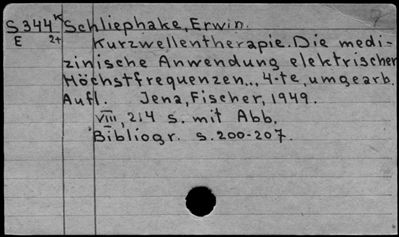 S344K Schliephake, Erwin.
E 2+ Kurzwellentherapie. Die medi-
zinische Anwendung elektrischer
Höchstfrequenzen... 4-te, umgearb.
Aufl. Jena, Fischer, 1949.
VIII, 214 s. mit Abb.
Bibliogr. s. 200-207.